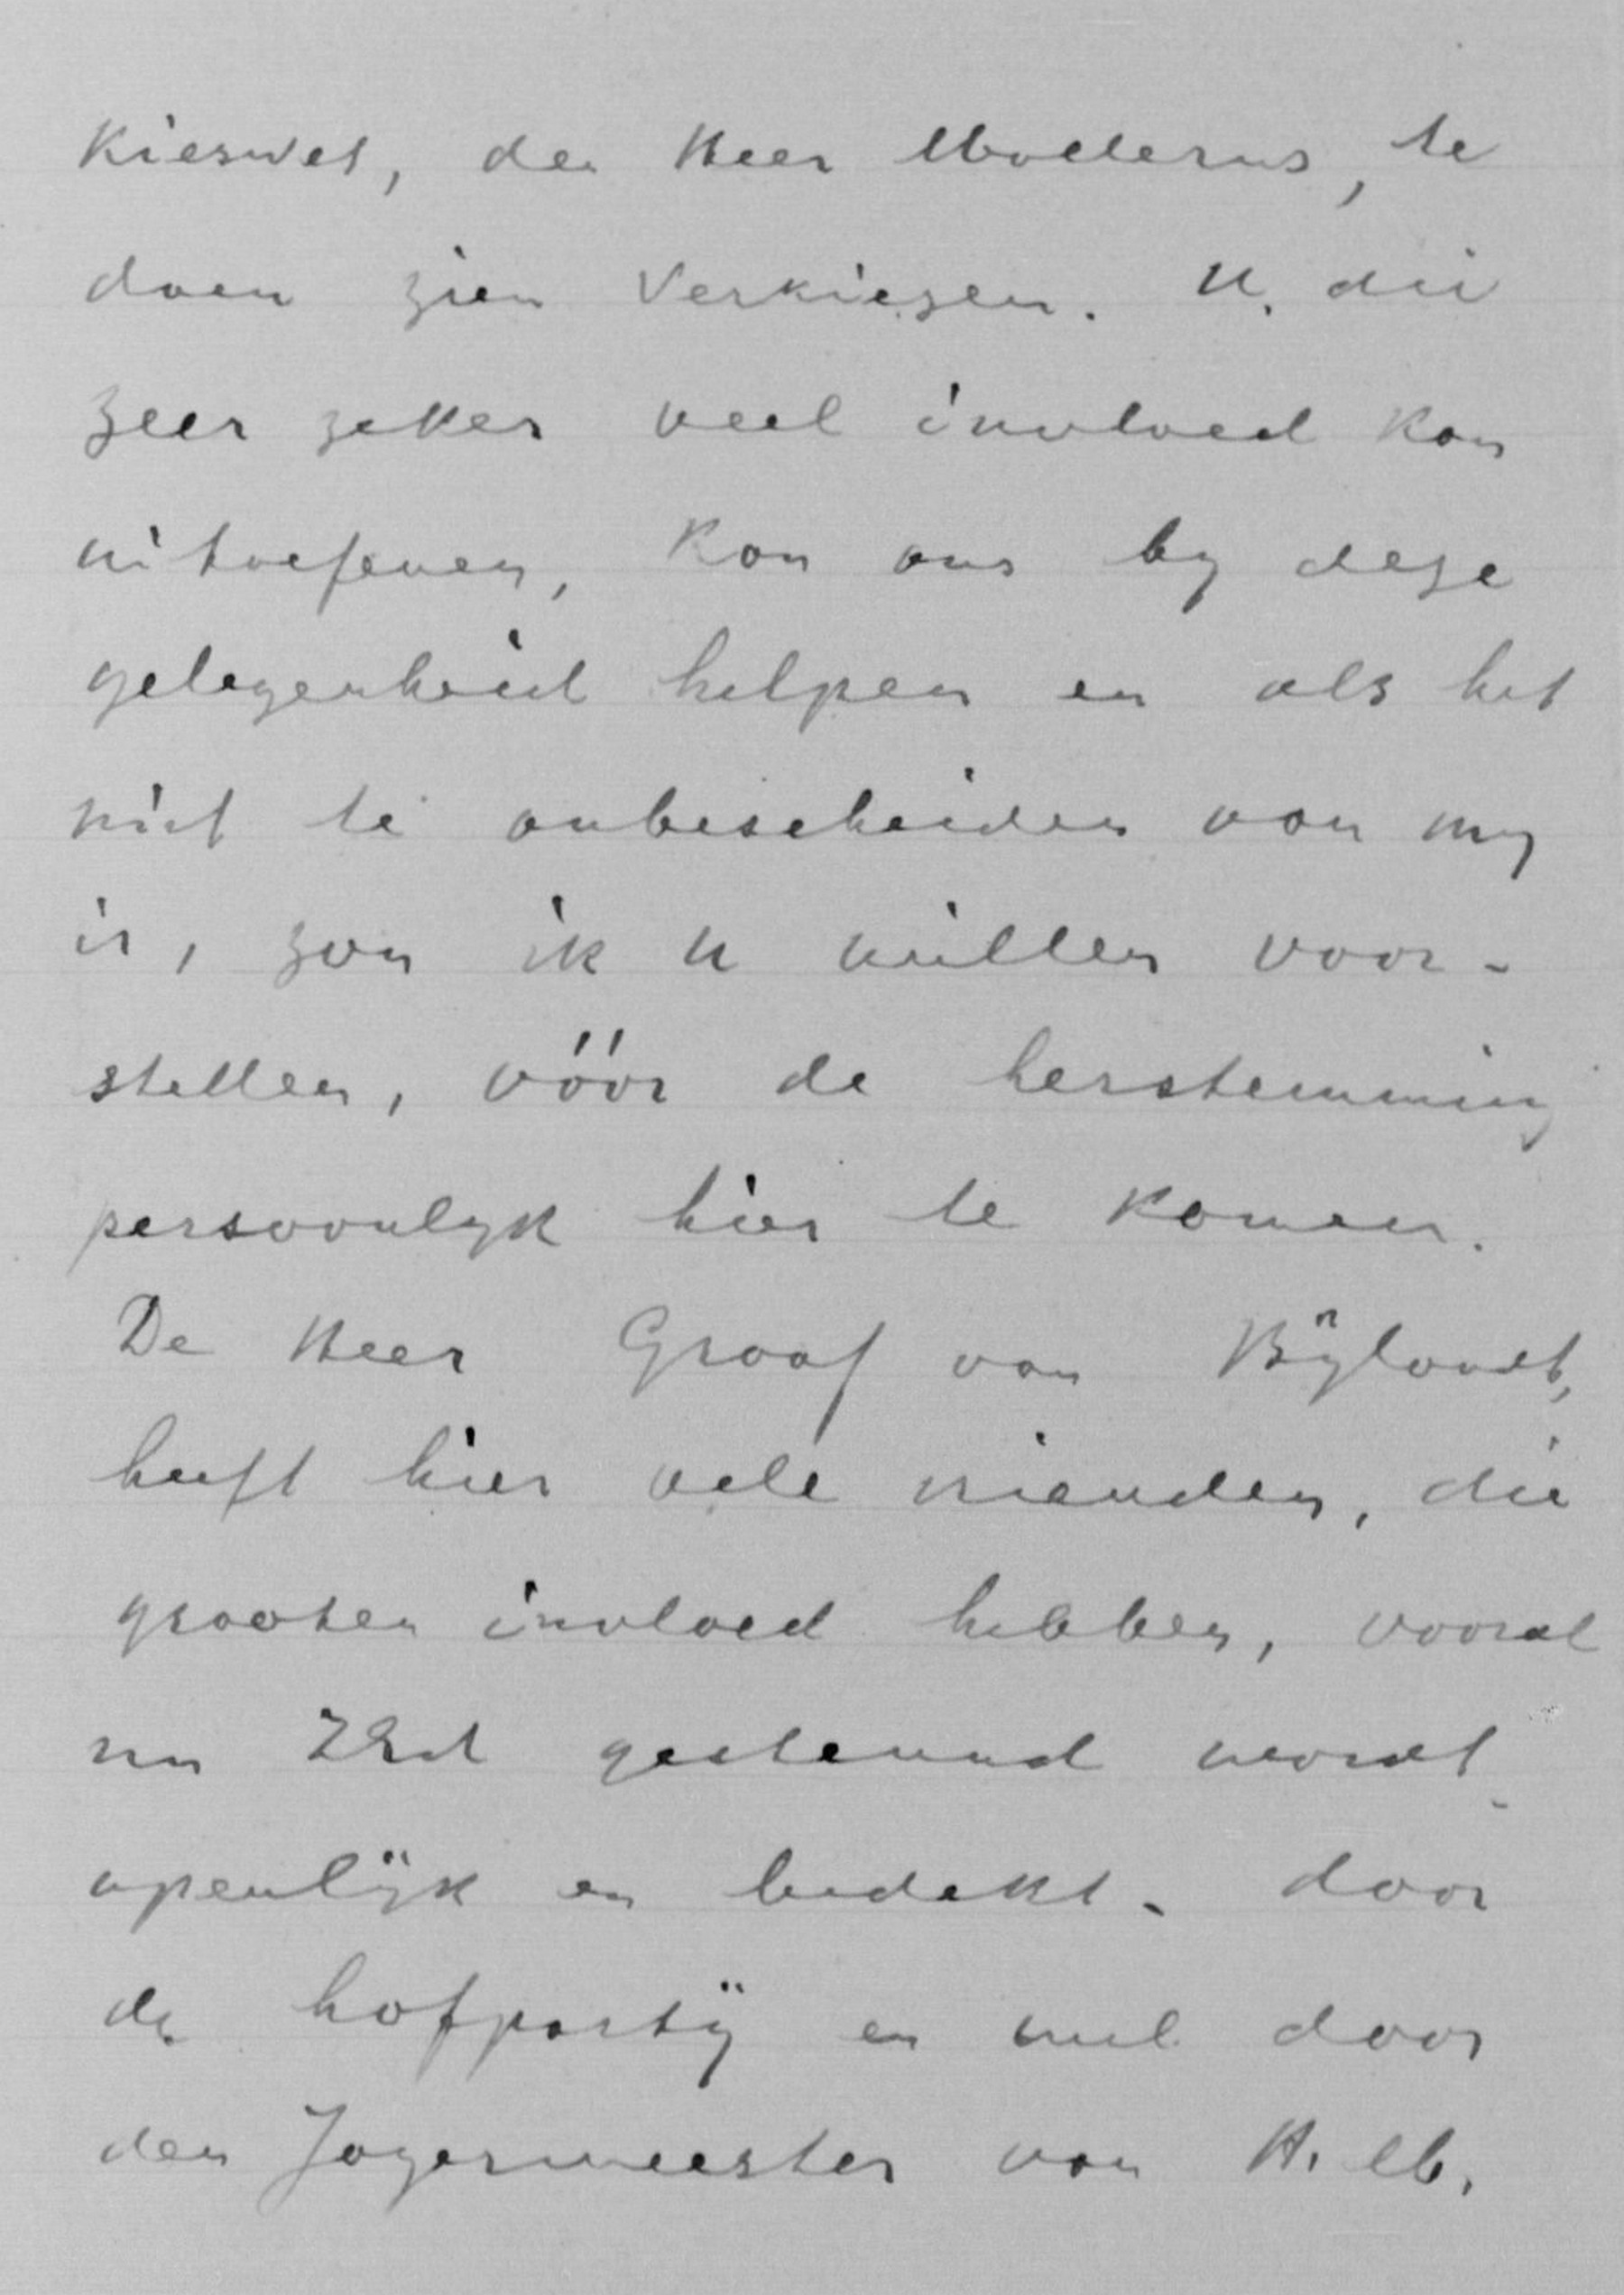 Kieswet, den Heer Modderus, te
doen zien verkiezen. U, die
zeer zeker veel invloed kan
uitoefenen, kan ons by deze
gelegenheid helpen en als het
niet te onbescheiden van my
is, zou ik U willen voor-
stellen, vóór de herstemming
persoonlyk hier te komen.
De Heer Graaf van Bÿlandt,
heeft hier vele vrienden, die
grooten invloed hebben, vooral
nu gesteund wordt -
openlÿk en bedekt - door
de hofpartÿ en wel door
den Jagermeester van H. M.